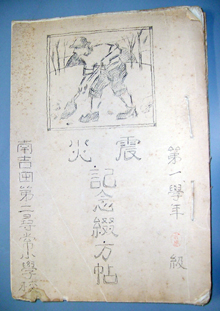 震災
記念綴方帖
第一學年 級
南吉田第二尋常小學校